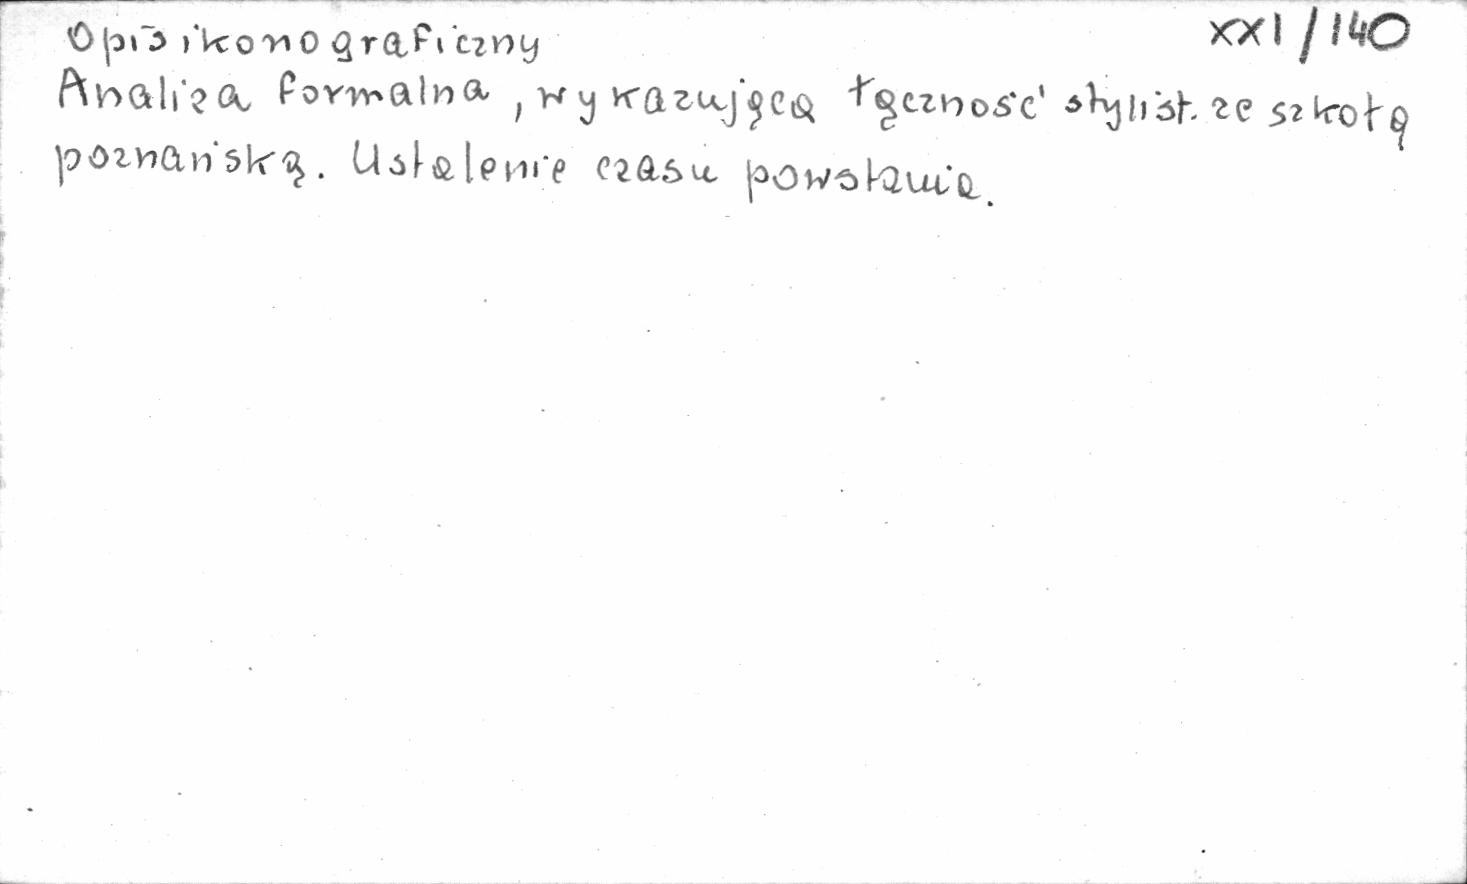 Opis ikonograficzny XXI/140
Analiza formalna, wykazująca łączność stylist. ze szkołą
poznańską. Ustalenie czasu powstania.